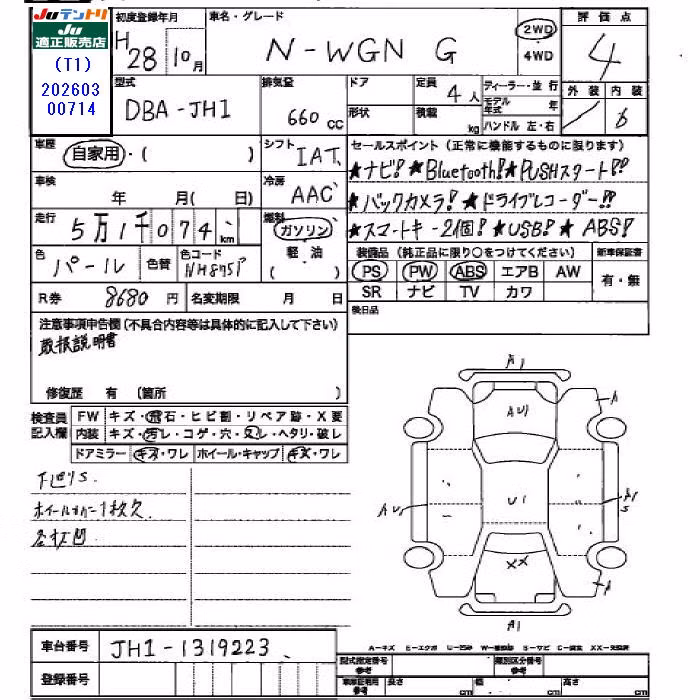 Juテントリ
Ju
適正販売店
(T1)
202603
00714
初度登録年月
H28 10月
車名・グレード
N-WGN G
2WD
4WD
評価点
4
外装 内装
B
型式
DBA-JH1
排気量
660 cc
ドア
形状
定員
4人
積載
kg
ディーラー・並行
モデル年式 年
ハンドル 左・右
車歴
自家用・( )
シフト
IAT
セールスポイント(正常に機能するものに限ります)
★ナビ! ★Bluetooth! ★PUSHスタート!!
★バックカメラ! ★ドライブレコーダー!!
★スマートキー2個! ★USB! ★ABS!
車検
年 月( 日)
冷房
AAC
走行
5万1千074 km
燃料
ガソリン
軽・油
( )
色
パール
色替
色コード
NH875P
装備品(純正品に限り○をつけてください)
PS PW ABS エアB AW
SR ナビ TV カワ
新車保証書
有・無
R券
8680 円
名変期限
月 日
後日品
注意事項申告欄(不具合内容等は具体的に記入して下さい)
取扱説明書
修復歴 有 (箇所 )
検査員記入欄
FW キズ・飛石・ヒビ割・リペア跡・X要
内装 キズ・汚レ・コゲ・穴・スレ・ヘタリ・破レ
ドアミラー キズ・ワレ ホイール・キャップ キズ・ワレ
下回りS.
ホイールカバー1枚欠
A1
A
AU1
AU1
U1
A1
S
XX
A
A1
車台番号
JH1-1319223
登録番号
A-キズ E-エクボ U-凹み W-補修跡 S-サビ C-腐食 XX-交換済
型式指定番号
参考
類別区分番号
参考
車庫証明用
参考
長さ cm
幅 cm
高さ cm